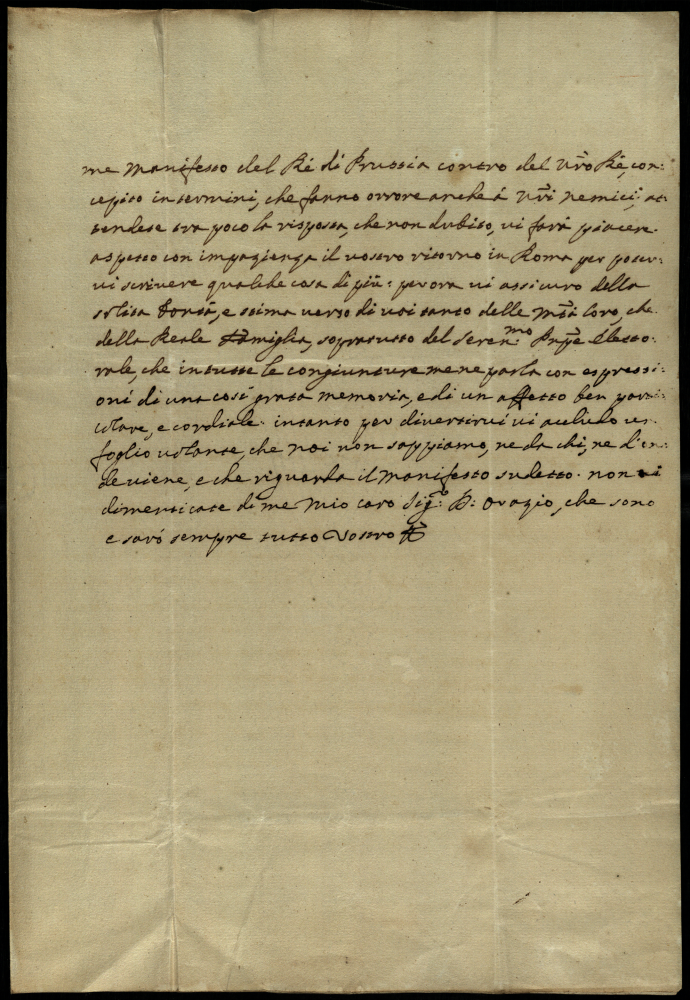 me manifesto del Ré di Prussia contro del Vr̃o Ré, con:
cepito in termini, che fanno orrore anche á Vr̃i nemici; at:
tendete trà poco la risposta, che non dubito, vi farà piacere.
aspetto con impazienza il vostro ritorno in Roma per poter:
vi scrivere qualche cosa di più: per ora vi assicuro della
solita bontà, e stima verso di voi tanto delle Mtà loro, che
della Reale famiglia, soprattutto del Seren:mo Prñpe Eletto:
rale, che in tutte le congiunture me ne parla con espressi:
oni di una così grata memoria, e di un affetto ben parti:
colare, e cordiale. intanto per divertirvi vi accludo un
foglio volante, che noi non sappiamo, ne da chi, ne d'on:
de viene, e che riguarda il manifesto sudetto. non vi
dimenticate di me Mio caro Sig:r D: Orazio, che sono
e saró sempre tutto Vostro